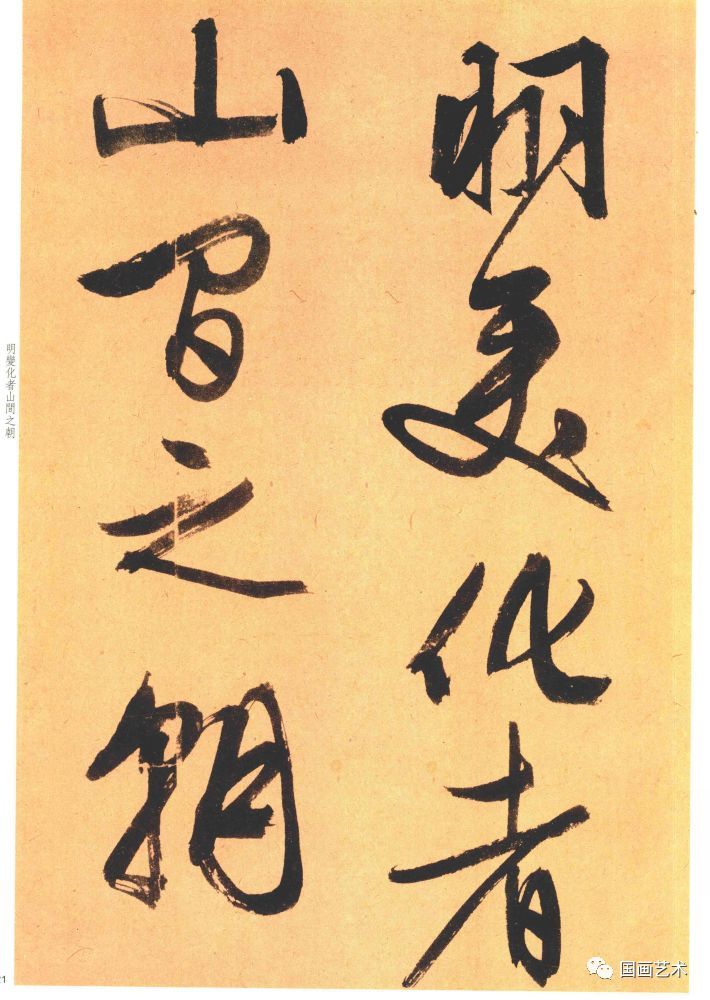 明變化者
山間之朝
明變化者山間之朝
21
国画艺术